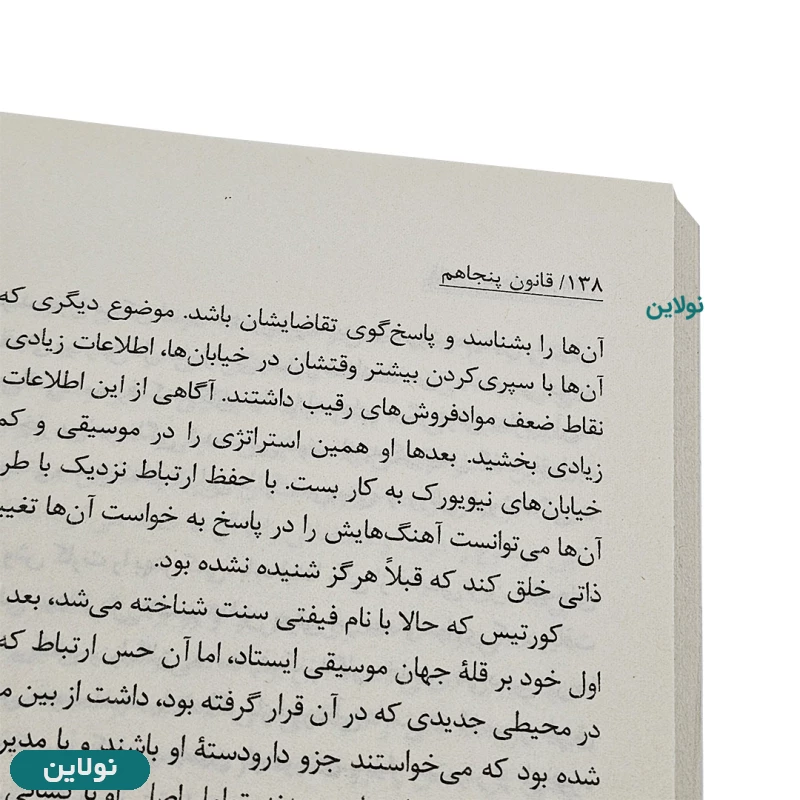 ۱۳۸/ قانون پنجاهم
نولاین
آن‌ها را بشناسد و پاسخ‌گوی تقاضایشان باشد. موضوع دیگری که
آن‌ها با سپری‌کردن بیشتر وقتشان در خیابان‌ها، اطلاعات زیادی
نقاط ضعف موادفروش‌های رقیب داشتند. آگاهی از این اطلاعات
زیادی بخشید. بعدها او همین استراتژی را در موسیقی و
خیابان‌های نیویورک به کار بست. با حفظ ارتباط نزدیک با
آن‌ها می‌توانست آهنگ‌هایش را در پاسخ به خواست آن‌ها
ذاتی خلق کند که قبلاً هرگز شنیده نشده بود.
کورتیس که حالا با نام فیفتی سنت شناخته می‌شد، بعد
اول خود بر قلهٔ جهان موسیقی ایستاد، اما آن حس ارتباط که
در محیطی جدیدی که در آن قرار گرفته بود، داشت از بین
شده بود که می‌خواستند جزو دارودستهٔ او باشند و با
نولاین